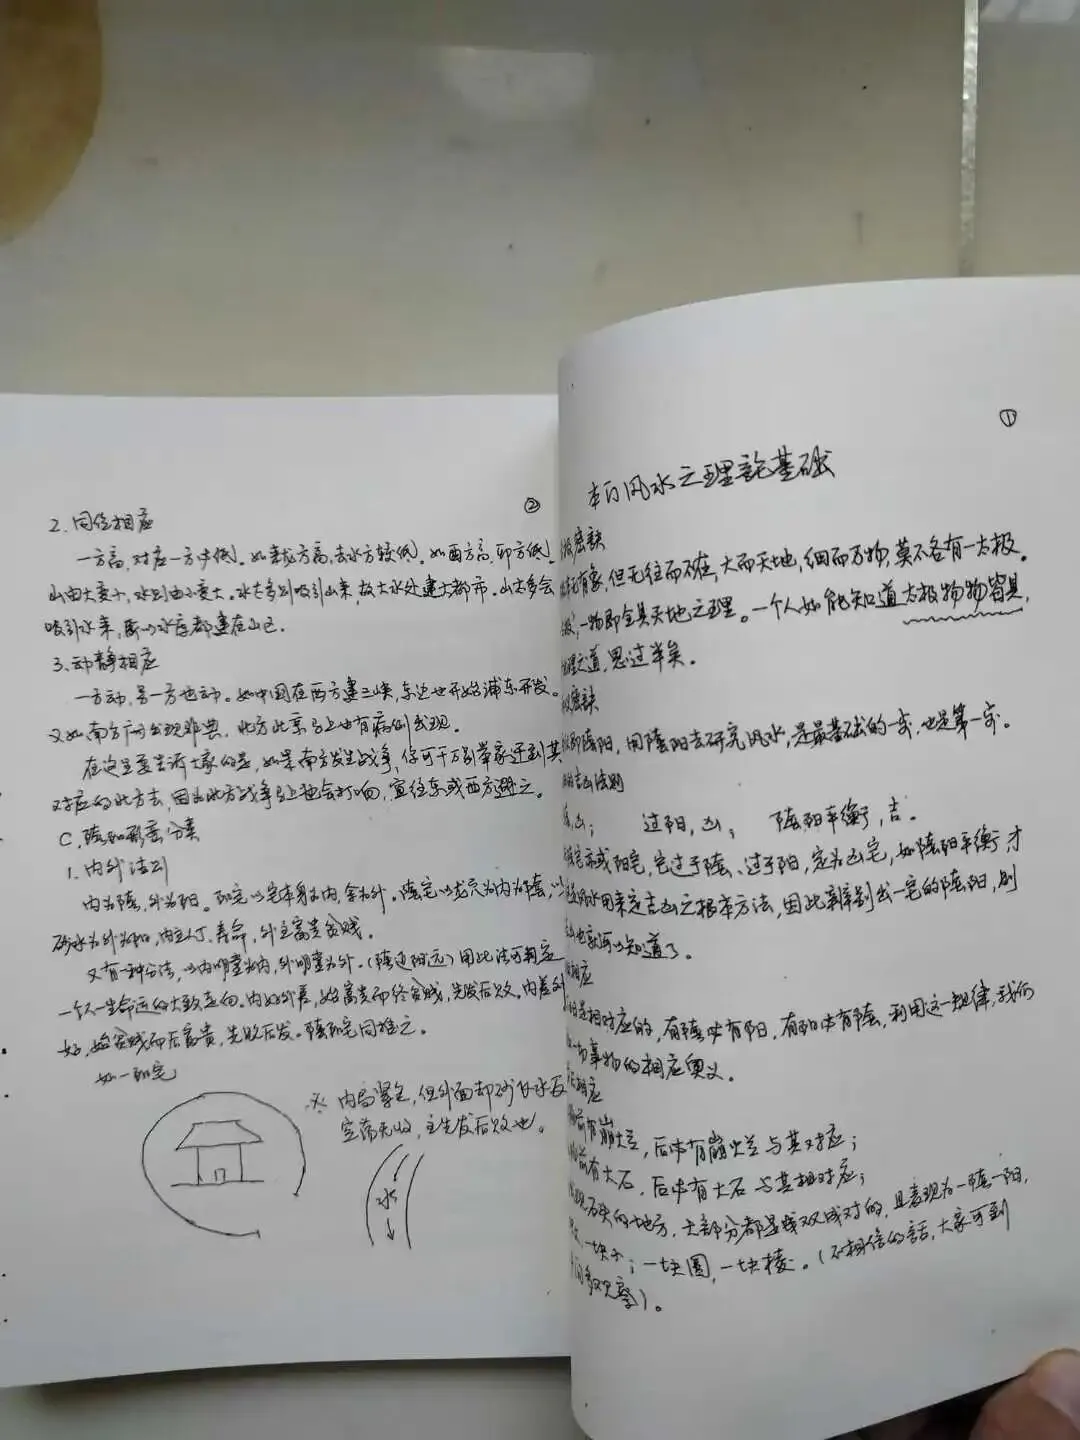 ②
2.同位相应
一方高,对应一方中低。如来龙方高,去水方较低。如西方高,即方低。
山由大变小,水则由小变大。水太多则吸引山来,故大水处建大都市。山太多会
吸引水来,所以水库都建在山区。
3.动静相应
一方动,另一方也动。如中国在西方建三峡,东边也开始浦东开发。
又如南方广州出现非典,北方北京马上也有病例出现。
在这里要告诉大家的是,如果南方发生战争,你可千万别举家迁到其
对应的北方去,因为北方战争马上也会打响,宜往东或西方避之。
C.阴阳形峦分类
1.内外法则
内为阴,外为阳。阳宅以宅本身为内,余为外。阴宅以龙穴为内为阴,以
砂水为外为阳,内主人丁、寿命,外主富贵贫贱。
又有一种方法,以内明堂为内,外明堂为外。(阴边阳远)用此法可判定
一个人一生命运的大致走向。内好外差,始富贵而终贫贱,先发后败。内差外
好,始贫贱而后富贵,先败后发。阴阳宅同推之。
如一阳宅
※ 内局紧包,但外面却砂飞水反
空荡无收,主先发后败也。
水
①
风水之理论基础
密诀
有象,但无往而不在,大而天地,细而万物,莫不各有一太极。
一物即全具天地之理。一个人如能知道太极物物皆具,
理之道,思过半矣。
密诀
即阴阳,用阴阳去研究风水,是最基础的一步,也是第一步。
吉凶法则
凶; 过阳,凶; 阴阳平衡,吉。
宅或阳宅,它过于阴、过于阳,定为凶宅,如阴阳平衡才
用来定吉凶之根本方法,因此辨别出一宅的阴阳,则
也就可以知道了。
相应
是相对应的,有阴必有阳,有阳必有阴,利用这一规律,我们
一切事物的相应奥义。
相应
前有崩烂,后必有崩烂与其对应;
前有大石,后必有大石与其相对应;
石头的地方,大部分都是成双成对的,且表现为一阴一阳,
一块小;一块圆,一块棱。(不相信的话,大家可到
间多观察)。